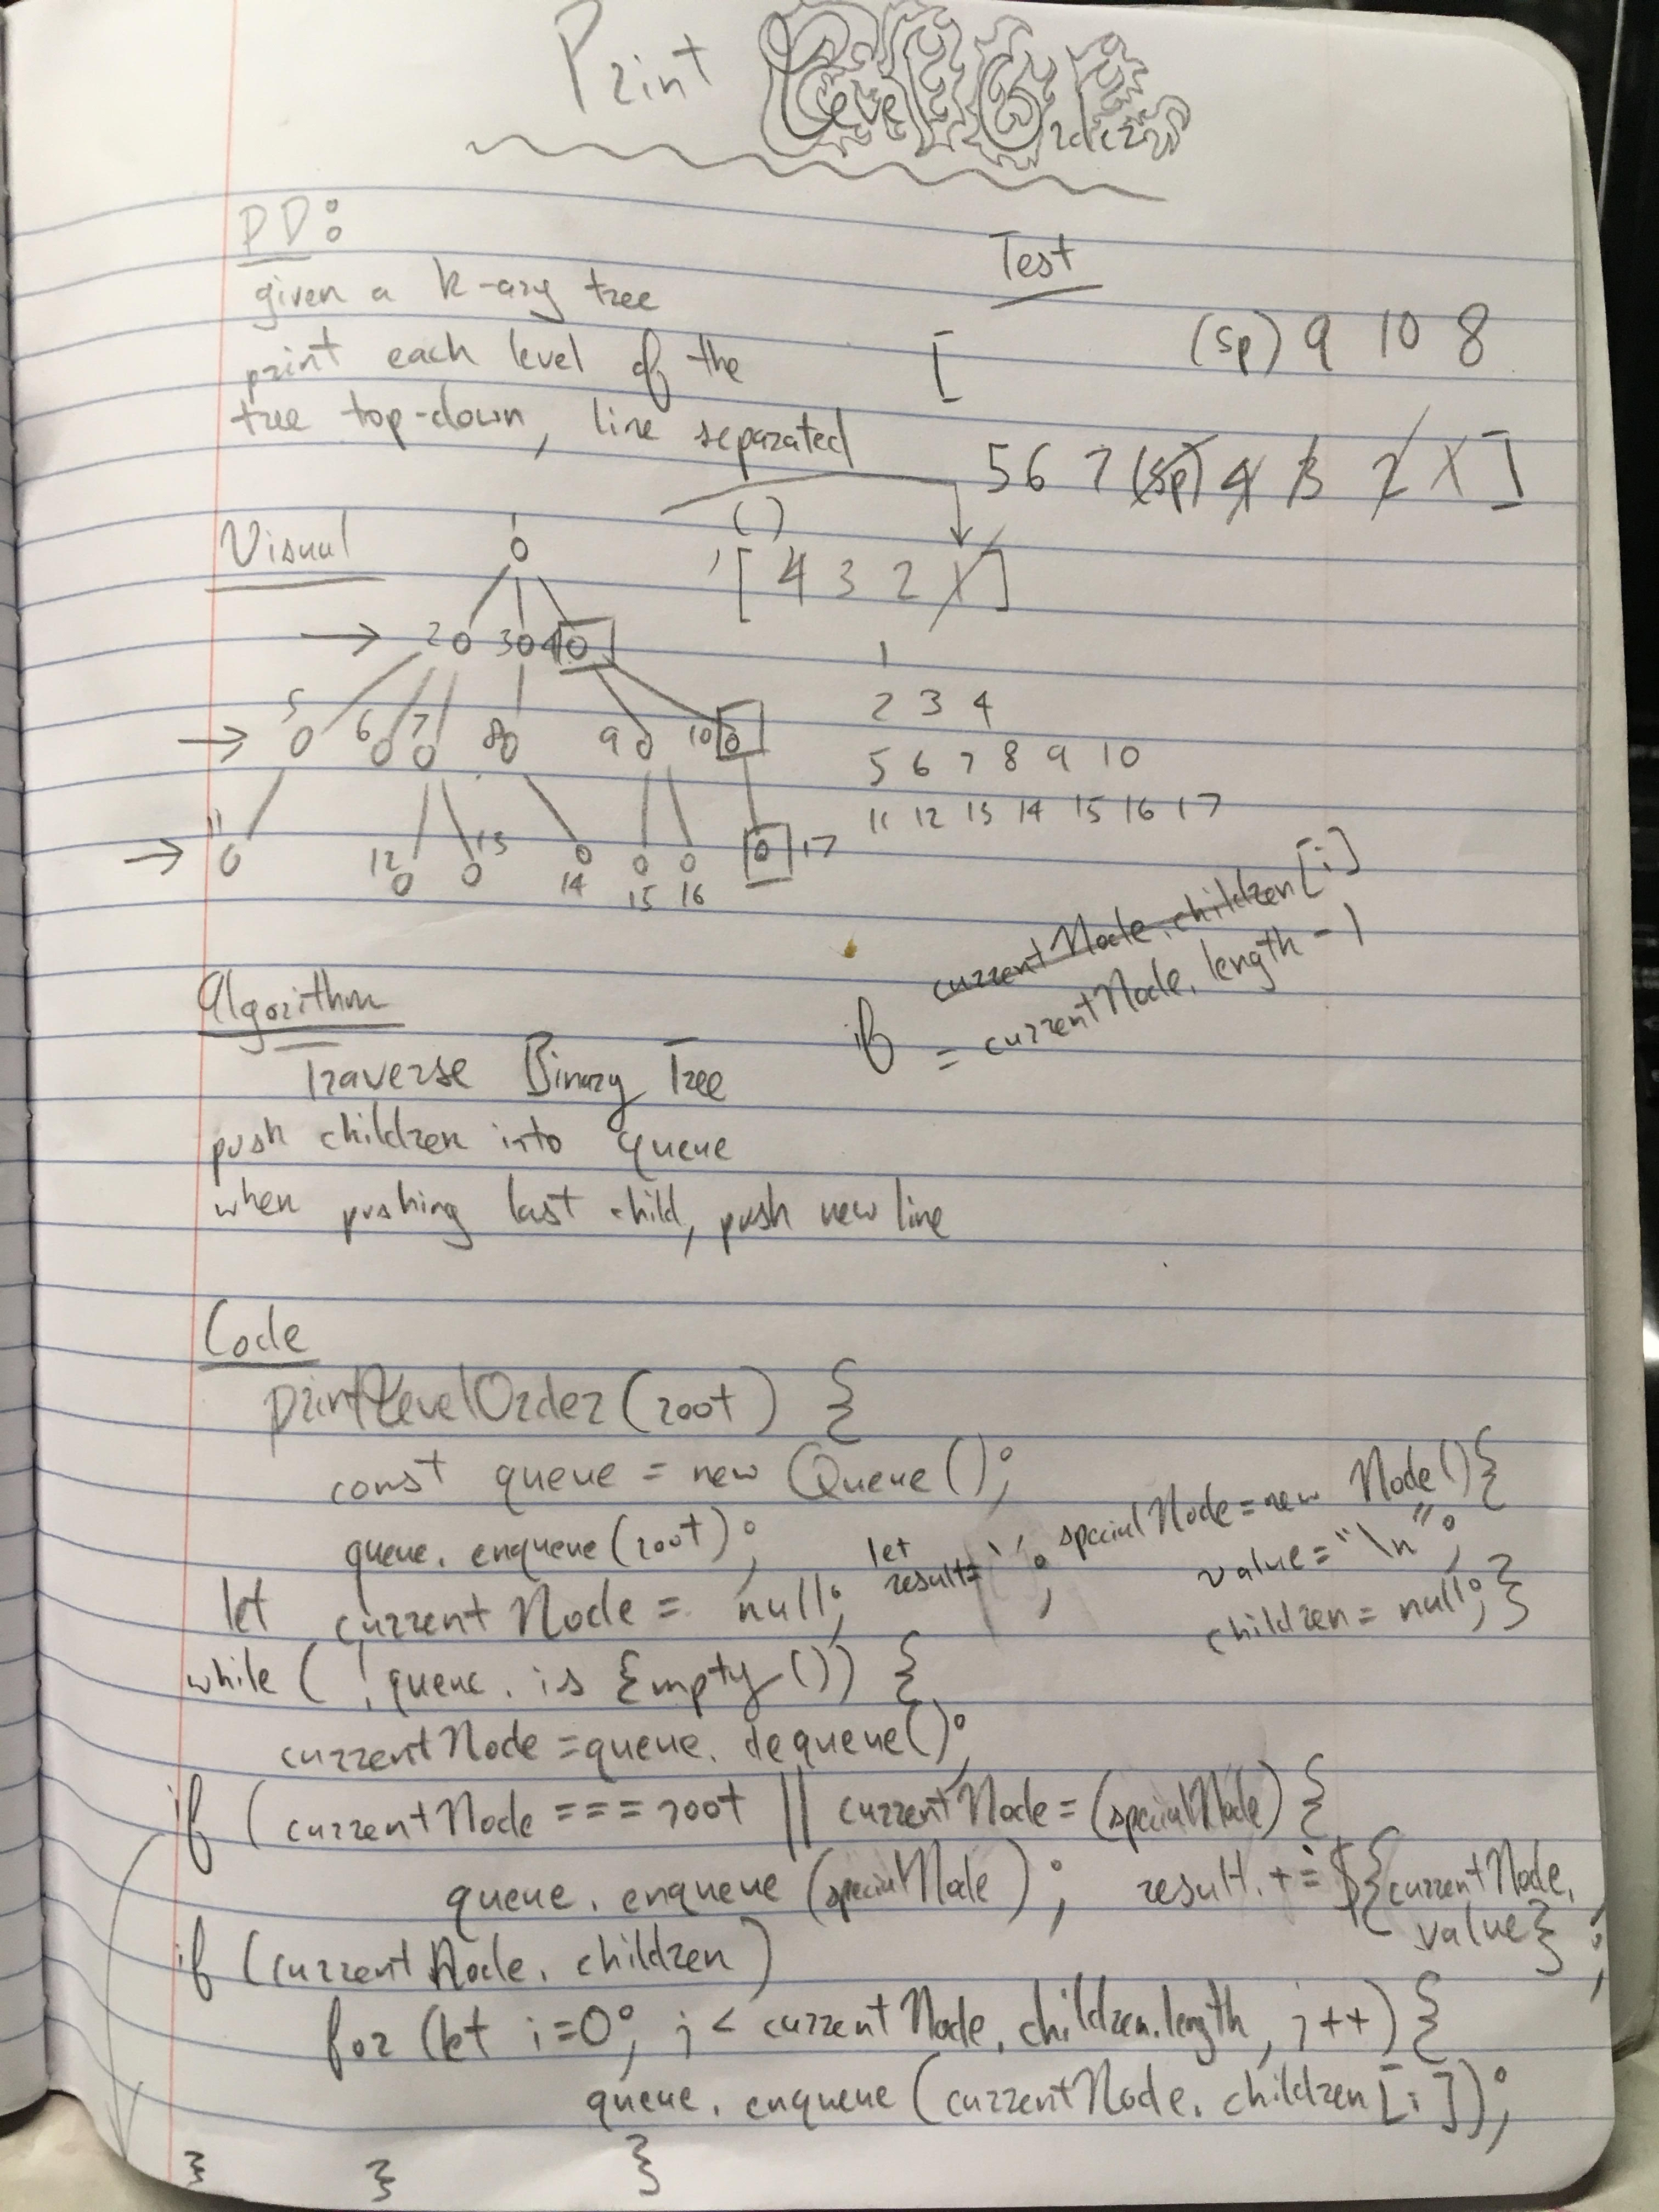 Print Level Order
PD:
given a k-ary tree
print each level of the
tree top-down, line separated
Test
[ (sp) 9 10 8
5 6 7 (sp) 4 3 2 1 ]
Visual
( )
[ 4 3 2 1 ]
1
2 3 4
5 6 7 8 9 10
11 12 13 14 15 16 17
1
2 3 4
5 6 7 8 9 10
11 12 13 14 15 16 17
currentNode.children[i]
if = currentNode.length - 1
Algorithm
Traverse Binary Tree
push children into queue
when pushing last child, push new line
Code
printLevelOrder(root) {
const queue = new Queue();
queue.enqueue(root);
let currentNode = null; let result = ''; specialNode = new Node() {
value = "\n";
children = null; }
while ( !queue.isEmpty()) {
currentNode = queue.dequeue();
if (currentNode === root || currentNode = (specialNode) {
queue.enqueue(specialNode); result.+= `${currentNode.
value};
if (currentNode.children)
for (let i=0; i < currentNode.children.length, i++) {
queue.enqueue(currentNode.children[i]);
} } }